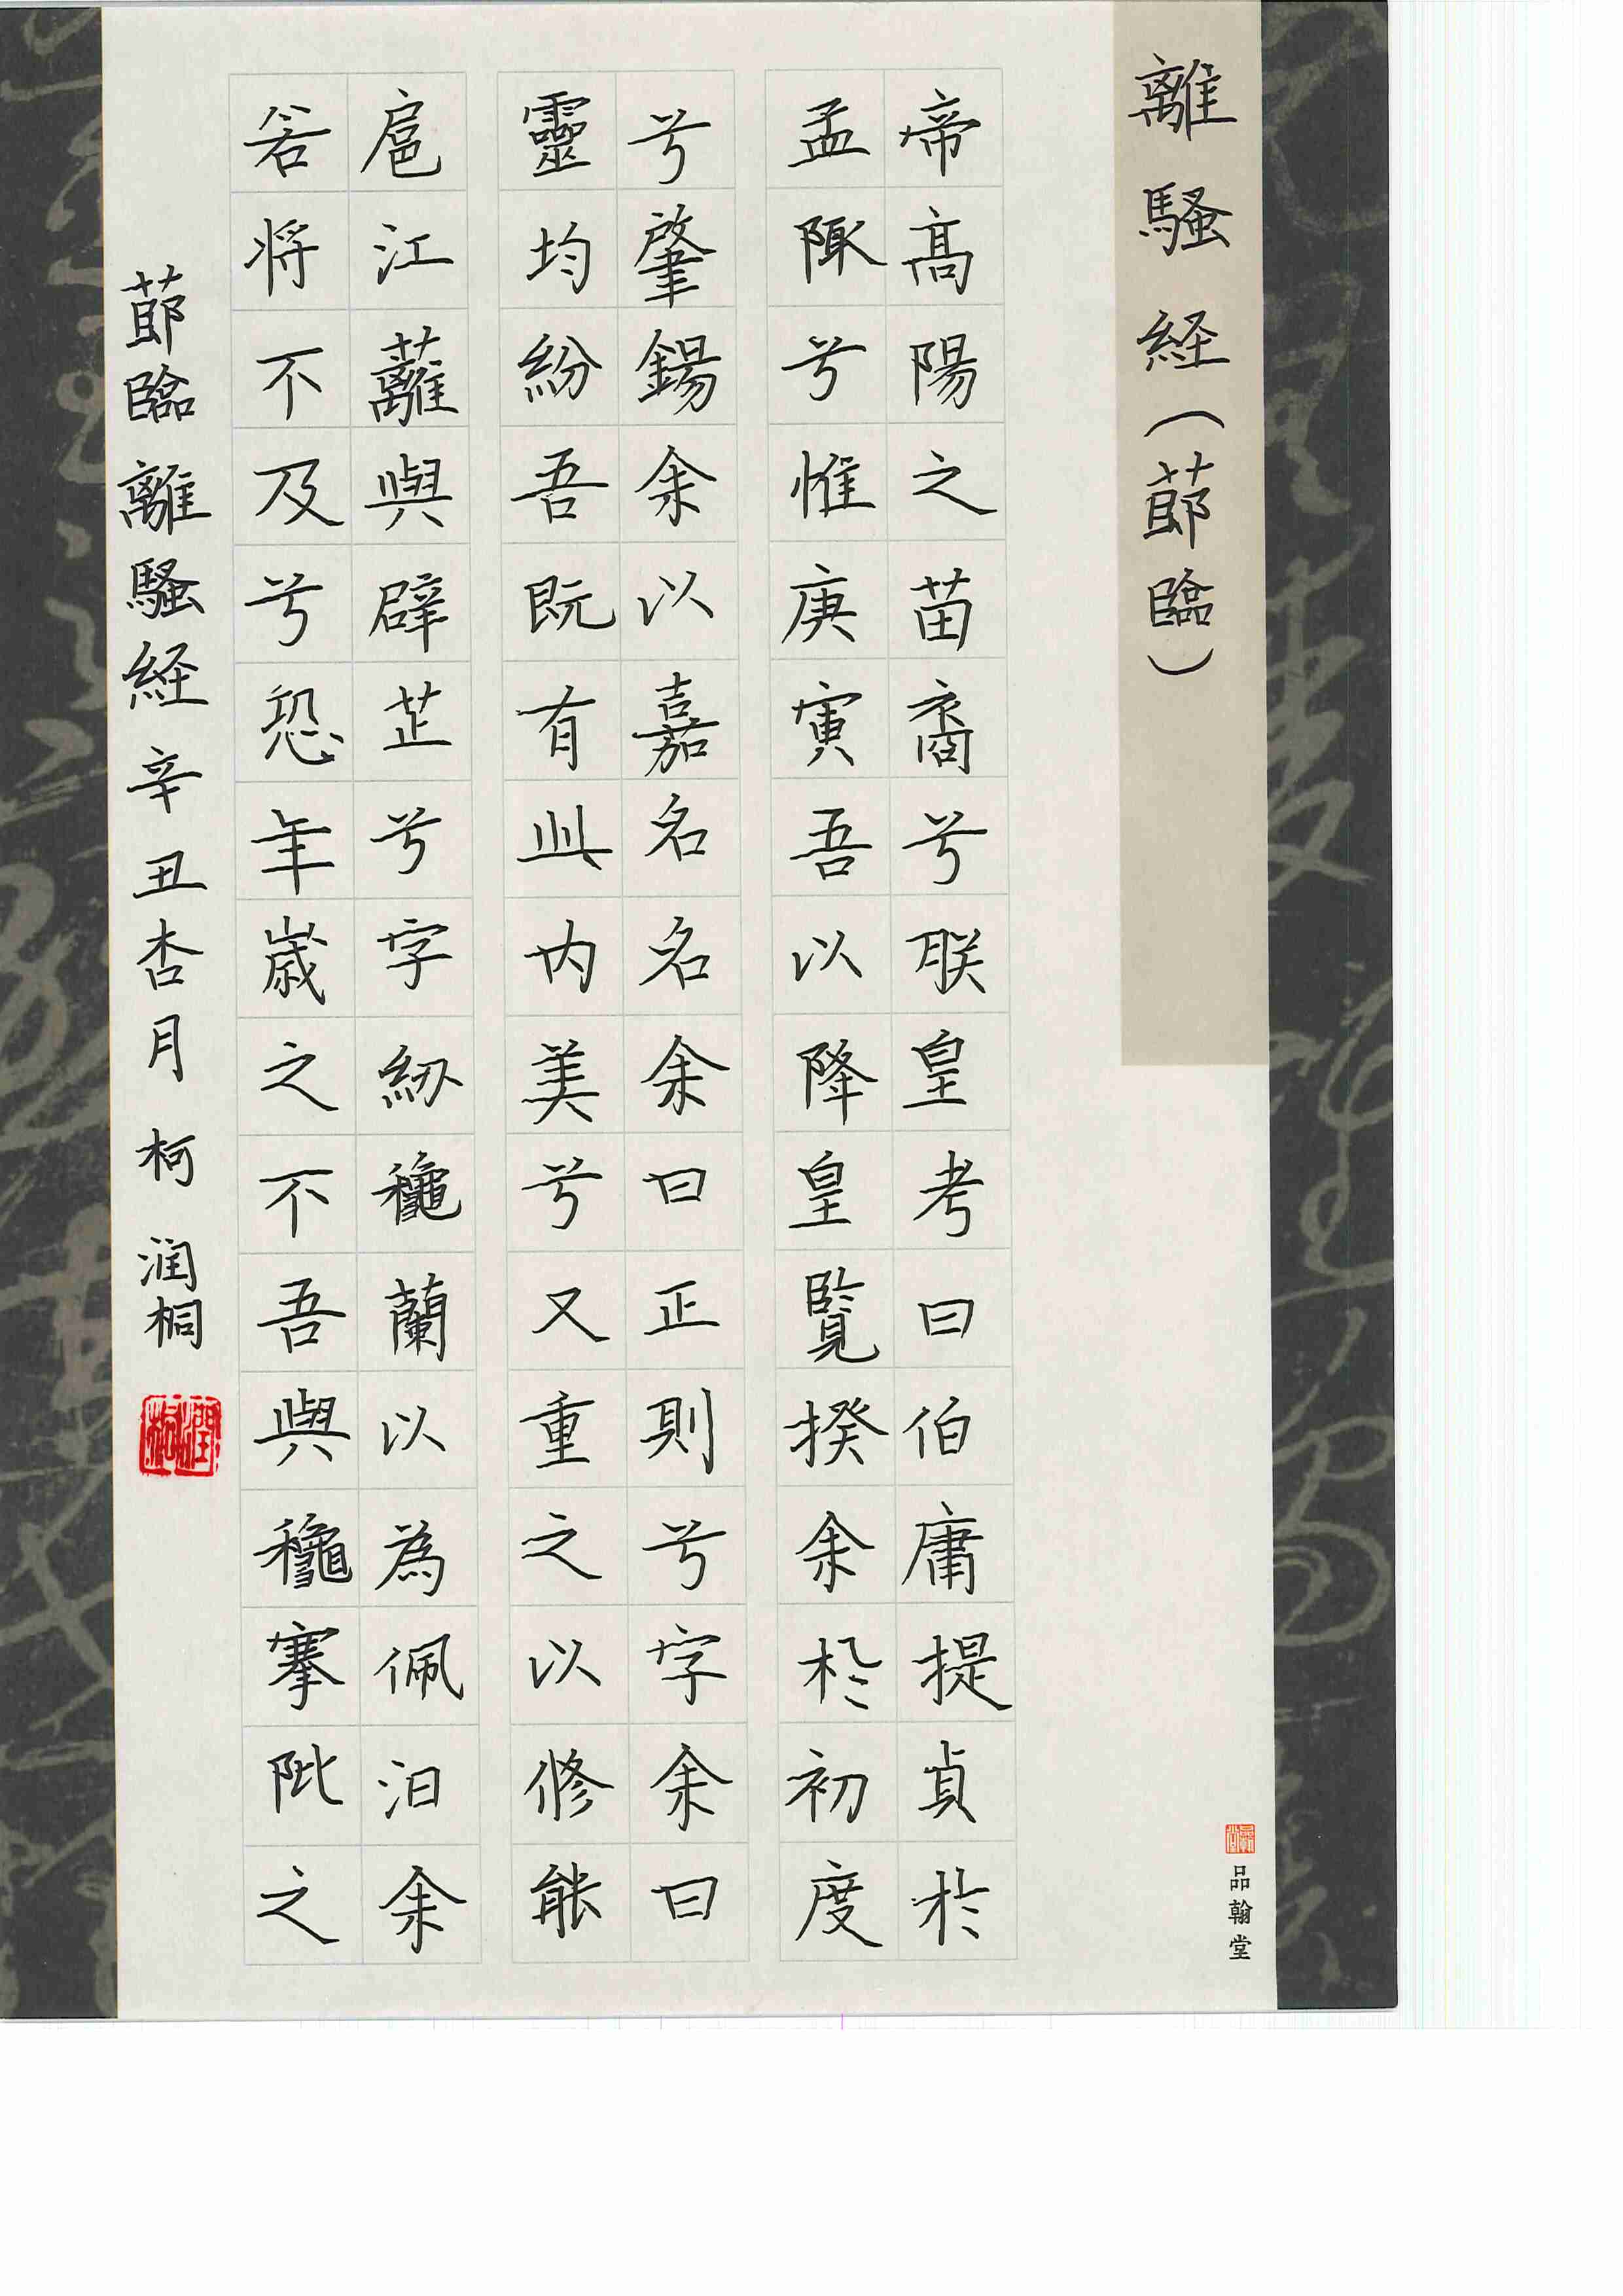 離騷経（莭臨）
帝高陽之苗裔兮联皇考曰伯庸提貞於
孟陬兮惟庚寅吾以降皇覽揆余於初度
兮肇錫余以嘉名名余曰正則兮字余曰
靈均紛吾既有此内美兮又重之以修能
扈江蘺與辟芷兮字紉穐蘭以為佩汩余
若将不及兮恐年歳之不吾與穐搴阰之
莭臨離騷経辛丑杏月柯润桐
潤桐
品翰堂